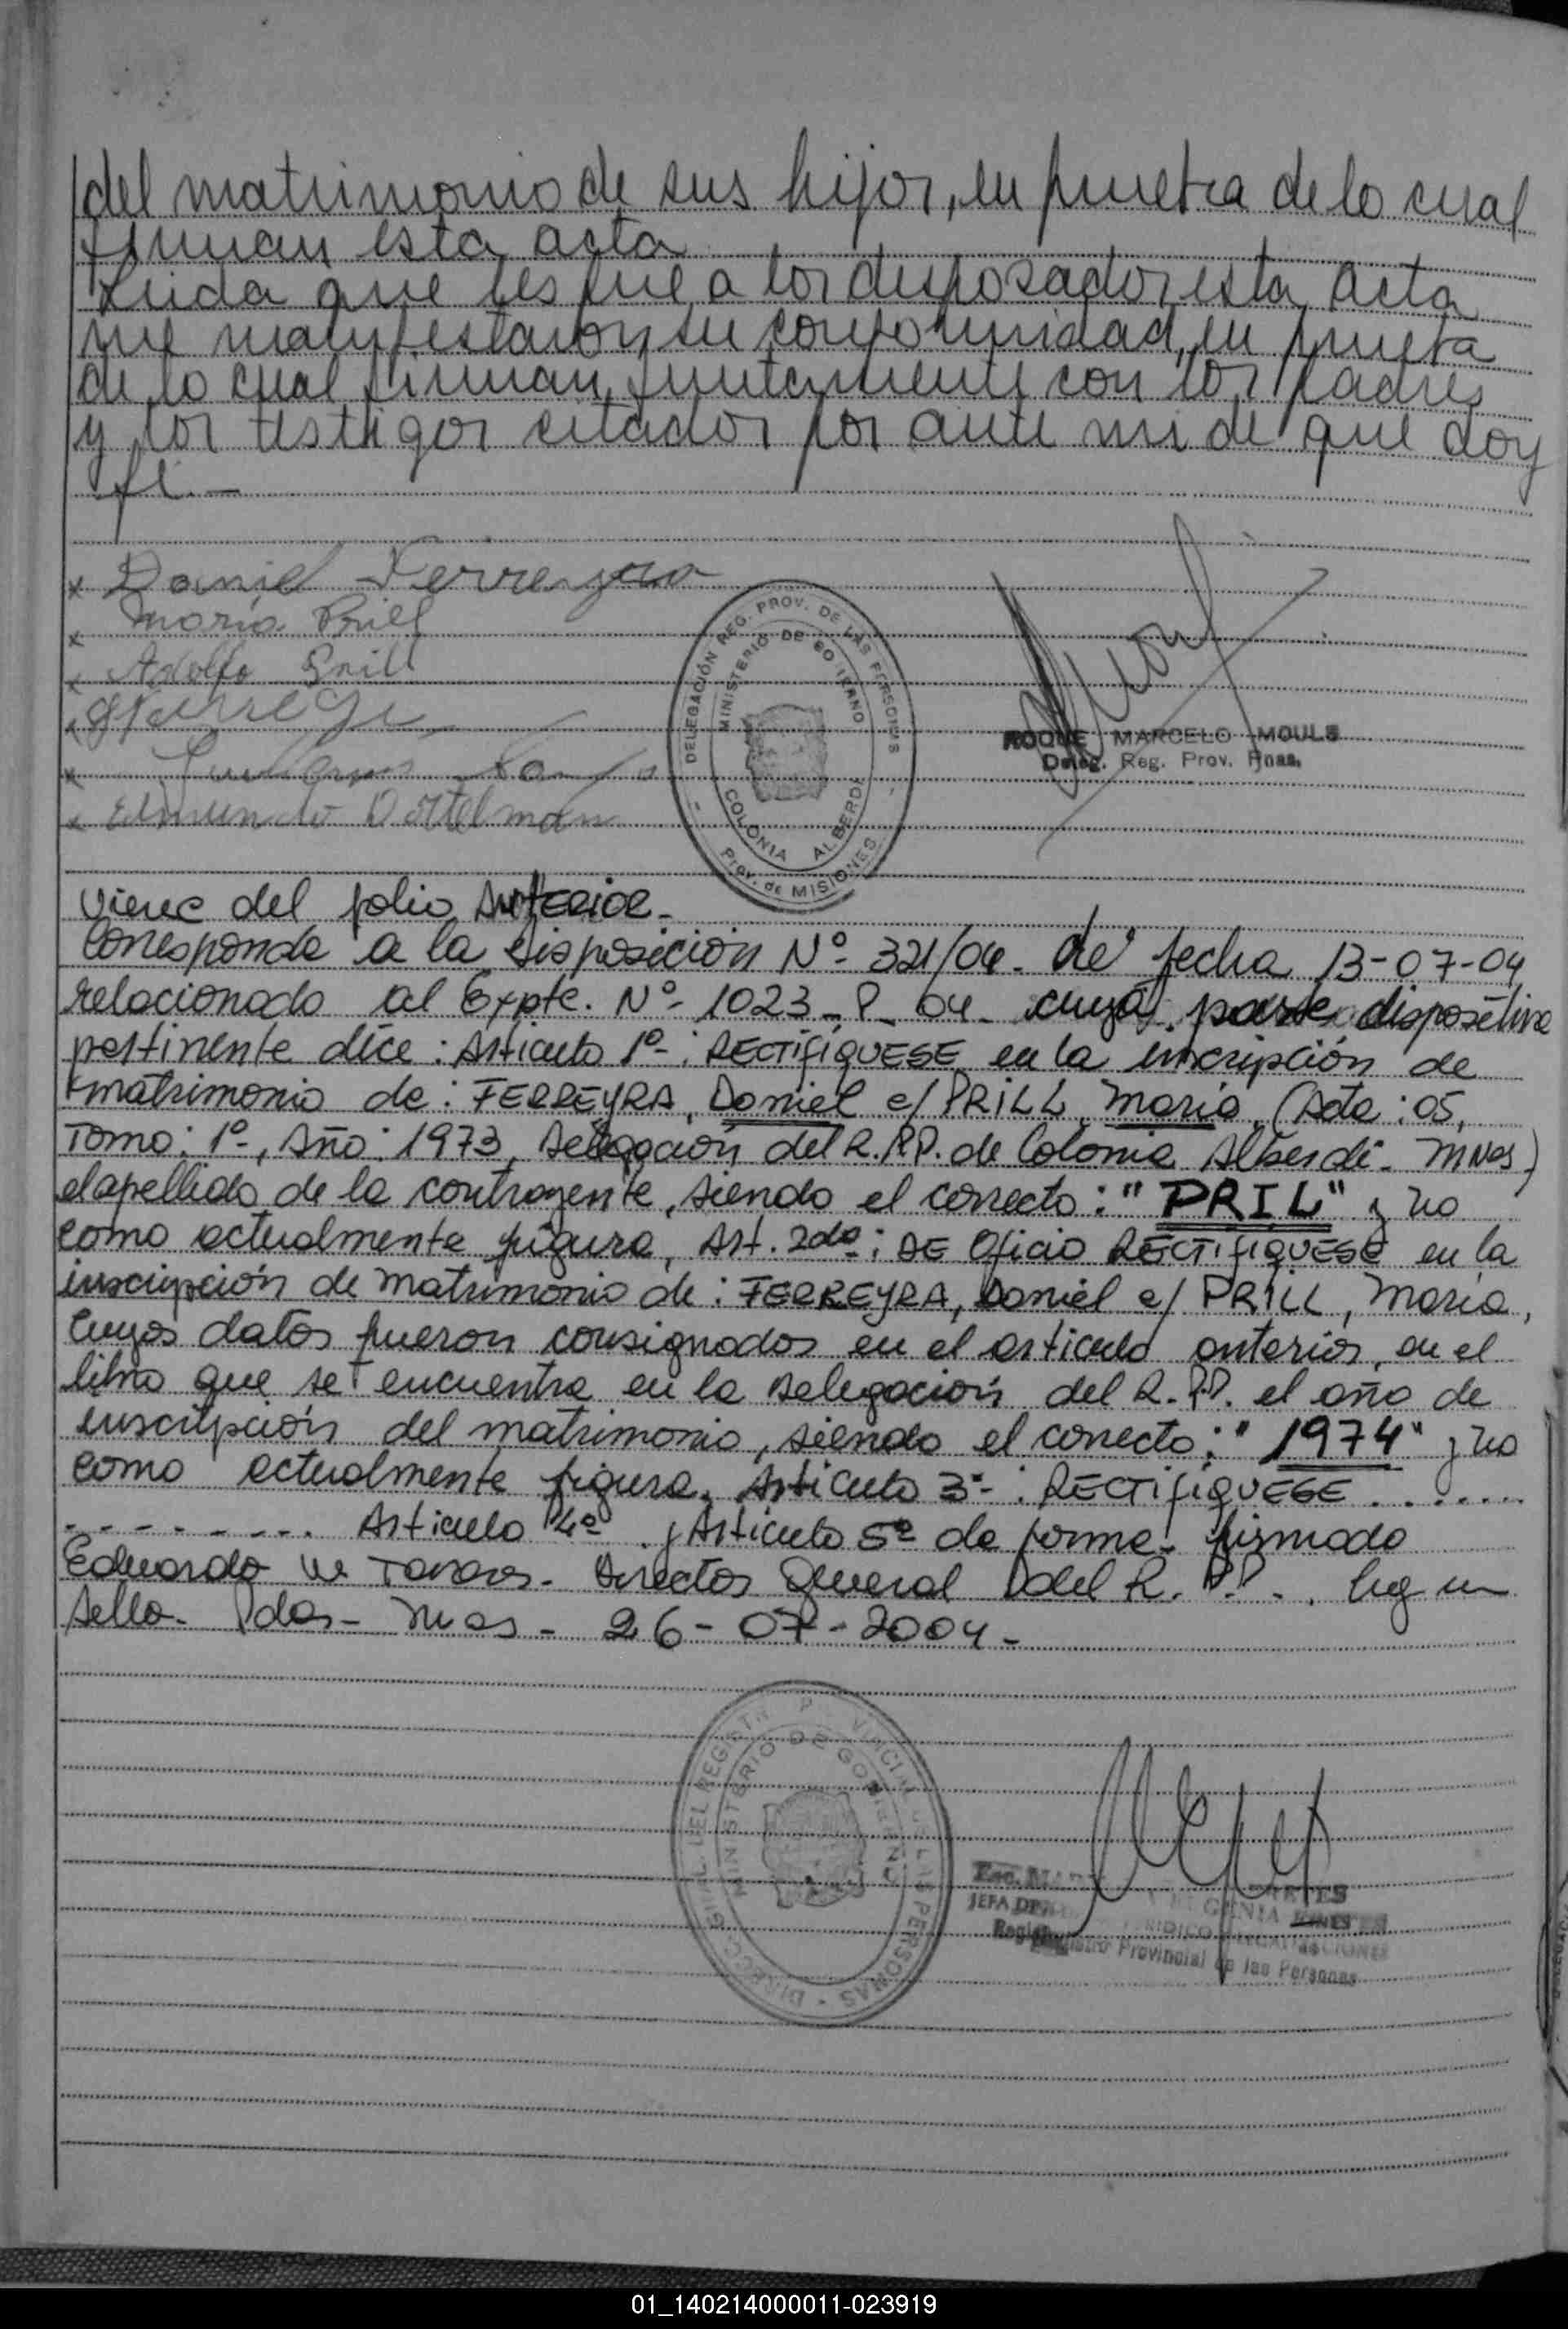 del matrimonio de sus hijos, en prueba de lo cual
firman esta acta
Leida que les fue a los desposados, esta acta
que manifestaron su conformidad, en prueba
de lo cual firman juntamente con los padres
y los testigos citados por ante mi de que doy
fe. -
x Daniel Ferreyra
x Maria Prill
x Adolfo Prill
x
x
x Edmundo Dottelman
DELEGACIÓN REG. PROV. DE LAS PERSONAS
MINISTERIO DE GOBIERNO
COLONIA ALBERDI
Prov. de MISIONES
ROQUE MARCELO MOULS
Deleg. Reg. Prov. Pnas.
Viene del folio Anterior-
Corresponde a la Disposición Nº- 321/04- de fecha 13-07-04
relacionado al Expte. Nº- 1023-P-04- cuya parte dispositiva
pertinente dice: Articulo 1º-: RECTIFIQUESE en la inscripción de
matrimonio de: FERREYRA, Daniel c/ PRILL, María, (Acta: 05,
Tomo: 1º-, Año: 1973, Delegación del R.P.P. de Colonia Alberdi- Mnes)
el apellido de la contrayente, siendo el correcto: "PRIL" y no
como actualmente figura, Art. 2do: DE Oficio RECTIFIQUESE en la
inscripción de matrimonio de: FERREYRA, Daniel c/ PRILL, María,
cuyos datos fueron consignados en el articulo anterior, en el
libro que se encuentra en la Delegación del R.P.P. el año de
inscripción del matrimonio, siendo el correcto: "1974" y no
como actualmente figura. Articulo 3º-: RECTIFIQUESE .......
......... Articulo 4º y Articulo 5º de forma. firmado
Eduardo - Director General del R.P.P. . Hay un
sello- Pdas- Mnes- 26-07-2004-
DIREC. GRAL. DEL REGISTRO PROVINCIAL DE LAS PERSONAS
MINISTERIO DE GOBIERNO
JEFA
Registro Provincial de las Personas